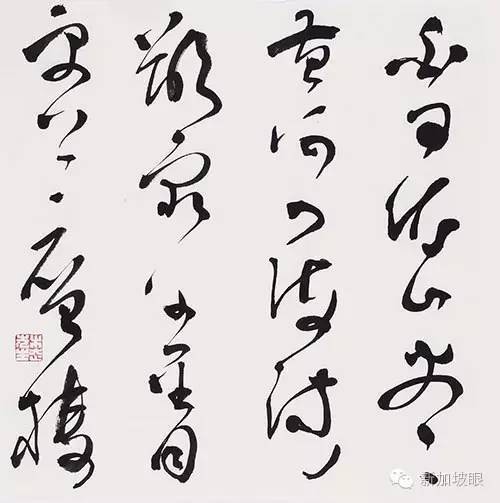 白日依山盡
黄河入海流
欲窮千里目
更上一層樓
新加坡眼